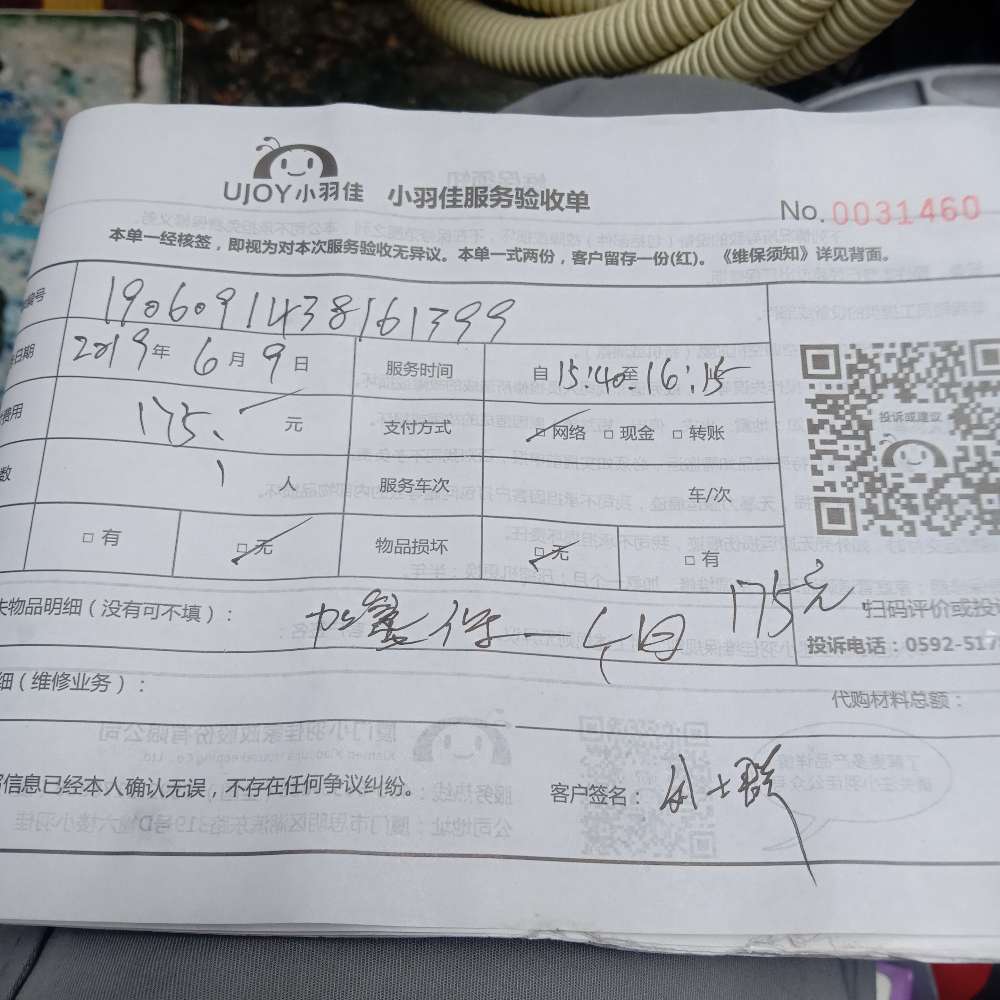 UJOY小羽佳 小羽佳服务验收单
No. 0031460
本单一经核签，即视为对本次服务验收无异议。本单一式两份，客户留存一份(红)。《维保须知》详见背面。
编号 1906091438161399
日期 2019年 6月 9日 服务时间 自15:40至16:15
费用 175. 元 支付方式 □网络 □现金 □转账
投诉或建议
数 1 人 服务车次 车/次
□有 □无 物品损坏 □无 □有
失物品明细（没有可不填）： 加雪保一个月 175元
扫码评价或投
投诉电话：0592-517
细（维修业务）：
代购材料总额：
信息已经本人确认无误，不存在任何争议纠纷。 客户签名：